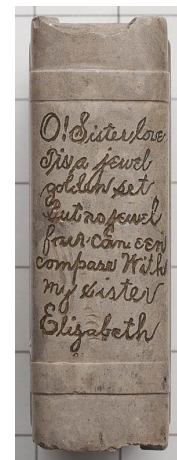 O! Sister, love
Tis a jewel
golden set
But no jewel
four can een
compare With
my sister
Elizabeth